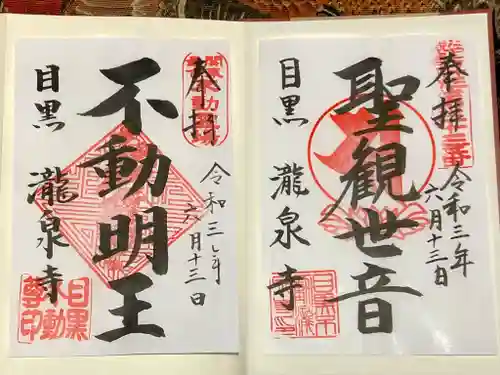 奉拝
令和三年
六月十三日
聖観世音
目黒 瀧泉寺
奉拝
令和三年
六月十三日
不動明王
目黒 瀧泉寺